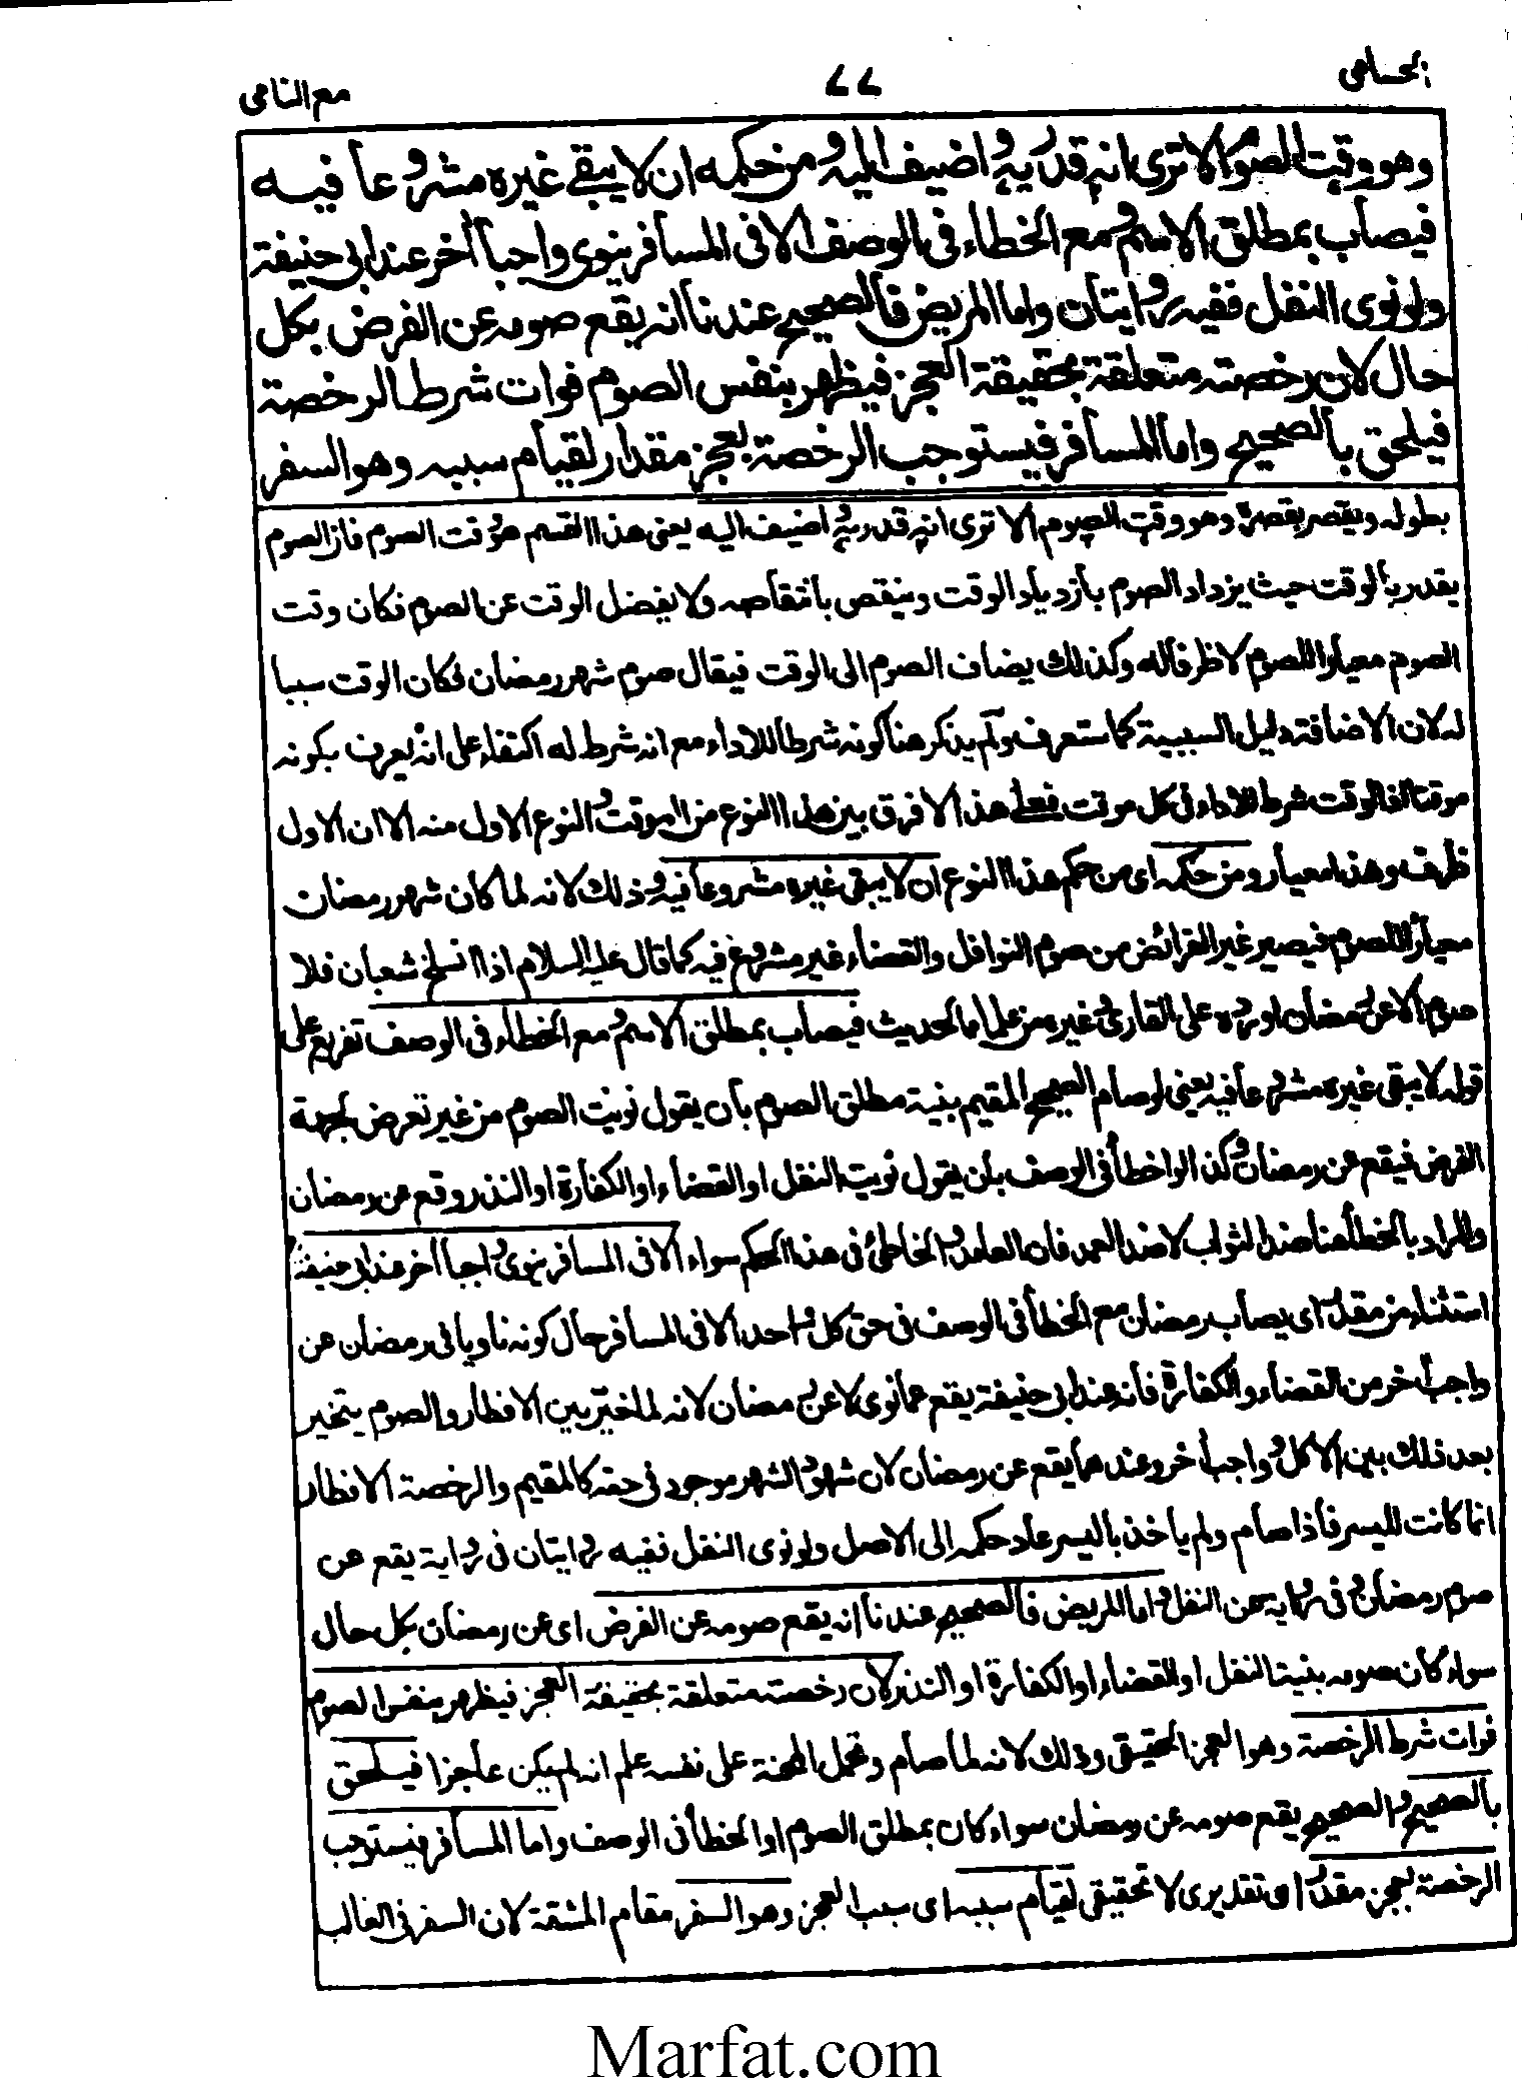 الحسامی
۷۷
مع النامی
وهو وقت الصوم الا تری انه قدر به واضیف الیه ومن حکمه ان لا یبقے غیره مشروعا فیه
فیصاب بمطلق الاسم ومع الخطاء فی الوصف الا فی المسافر ینوی واجبا آخر عند ابی حنیفة
ولو نوی النفل ففیه روایتان واما المریض فالصحیح عندنا انه یقع صومه عن الفرض بکل
حال لان رخصته متعلقة بحقیقة العجز فیظهر بنفس الصوم فوات شرط الرخصة
فیلحق بالصحیح واما المسافر فیستوجب الرخصة بعجز مقدار لقیام سببه وهو السفر
بطوله ویقصر بقصره وهو وقت الصوم الا تری انه قدر به واضیف الیه یعنی هذا القسم موقت الصوم فان الصوم
یقدر بالوقت حیث یزداد الصوم بازدیاد الوقت وینقص بانتقاصه ولا یفضل الوقت عن الصوم فکان وقت
الصوم معیارا للصوم لا ظرفا له وکذلك یضاف الصوم الی الوقت فیقال صوم شهر رمضان فکان الوقت سببا
له لان الاضافة دلیل السببیة کما ستعرف ولم یذکر هنا کونه شرطا للاداء مع انه شرط له اکتفاء علی انه یعرف بکونه
موقتا اذ الوقت شرط للاداء فی کل موقت فعلے هذا لا فرق بین هذا النوع من الموقت والنوع الاول منه الا ان الاول
ظرف وهذا معیار ومن حکمه ای من حکم هذا النوع ان لا یبقی غیره مشروعا فیه وذلك لانه لما کان شهر رمضان
معیارا للصوم فیصیر غیر الفرائض من صوم النوافل والقضاء غیر مشروع فیه کما قال علیه السلام اذا انسلخ شعبان فلا
صوم الا عن رمضان اورده علی القاری وغیره من علماء الحدیث فیصاب بمطلق الاسم ومع الخطاء فی الوصف تفریع علی
قوله لا یبقی غیره مشروعا فیه یعنی لو صام الصحیح المقیم بنیة مطلق الصوم بان یقول نویت الصوم من غیر تعرض لجهة
الفرض فیقع عن رمضان وکذا لو اخطأ فی الوصف بان یقول نویت النفل او القضاء او الکفارة او النذر وقع عن رمضان
والمراد بالخطأ هنا ضد الثواب لا ضد العمد فان العامد والخاطئ فی هذا الحکم سواء الا فی المسافر ینوی واجبا آخر عند ابی حنیفة
استثناء من مقدر ای یصاب رمضان مع الخطأ فی الوصف فی حق کل واحد الا فی المسافر حال کونه ناویا فی رمضان عن
واجب آخر من القضاء والکفارة فانه عند ابی حنیفة یقع عما نوی لا عن رمضان لانه لما خیر بین الافطار والصوم یتخیر
بعد ذلك بین الاکل وواجب آخر وعندهما یقع عن رمضان لان شهود الشهر موجود فی حقه کالمقیم والرخصة الافطار
انما کانت للیسر فاذا صام ولم یاخذ بالیسر عاد حکمه الی الاصل ولو نوی النفل ففیه روایتان فی روایة یقع عن
صوم رمضان وفی روایة عن النفل واما المریض فالصحیح عندنا انه یقع صومه عن الفرض ای عن رمضان بکل حال
سواء کان صومه بنیة النفل او القضاء او الکفارة او النذر لان رخصته متعلقة بحقیقة العجز فیظهر بنفس الصوم
فوات شرط الرخصة وهو العجز الحقیقی وذلك لانه لما صام وتحمل المحنة علی نفسه علم انه لم یکن عاجزا فیلحق
بالصحیح والصحیح یقع صومه عن رمضان سواء کان بمطلق الصوم او الخطأ فی الوصف واما المسافر فیستوجب
الرخصة بعجز مقدر ای تقدیری لا تحقیقی لقیام سببه ای سبب العجز وهو السفر مقام المشقة لان السفر فی الغالب
Marfat.com